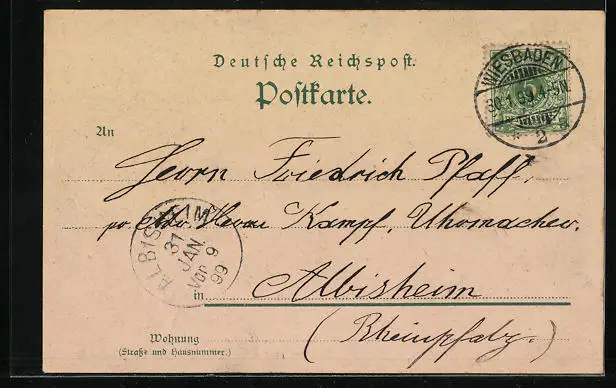 Deutsche Reichspost.
Postkarte.
WIESBADEN
30.1.99.4-5N.
* 2
An
Herrn Friedrich Pfaff,
Herrn Kampf, Uhrmacher.
ALBISHEIM
31
JAN
Vor 9
99
in Albisheim
(Rheinpfalz.)
Wohnung
(Straße und Hausnummer.)